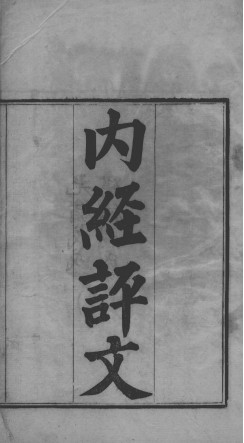 内經評文